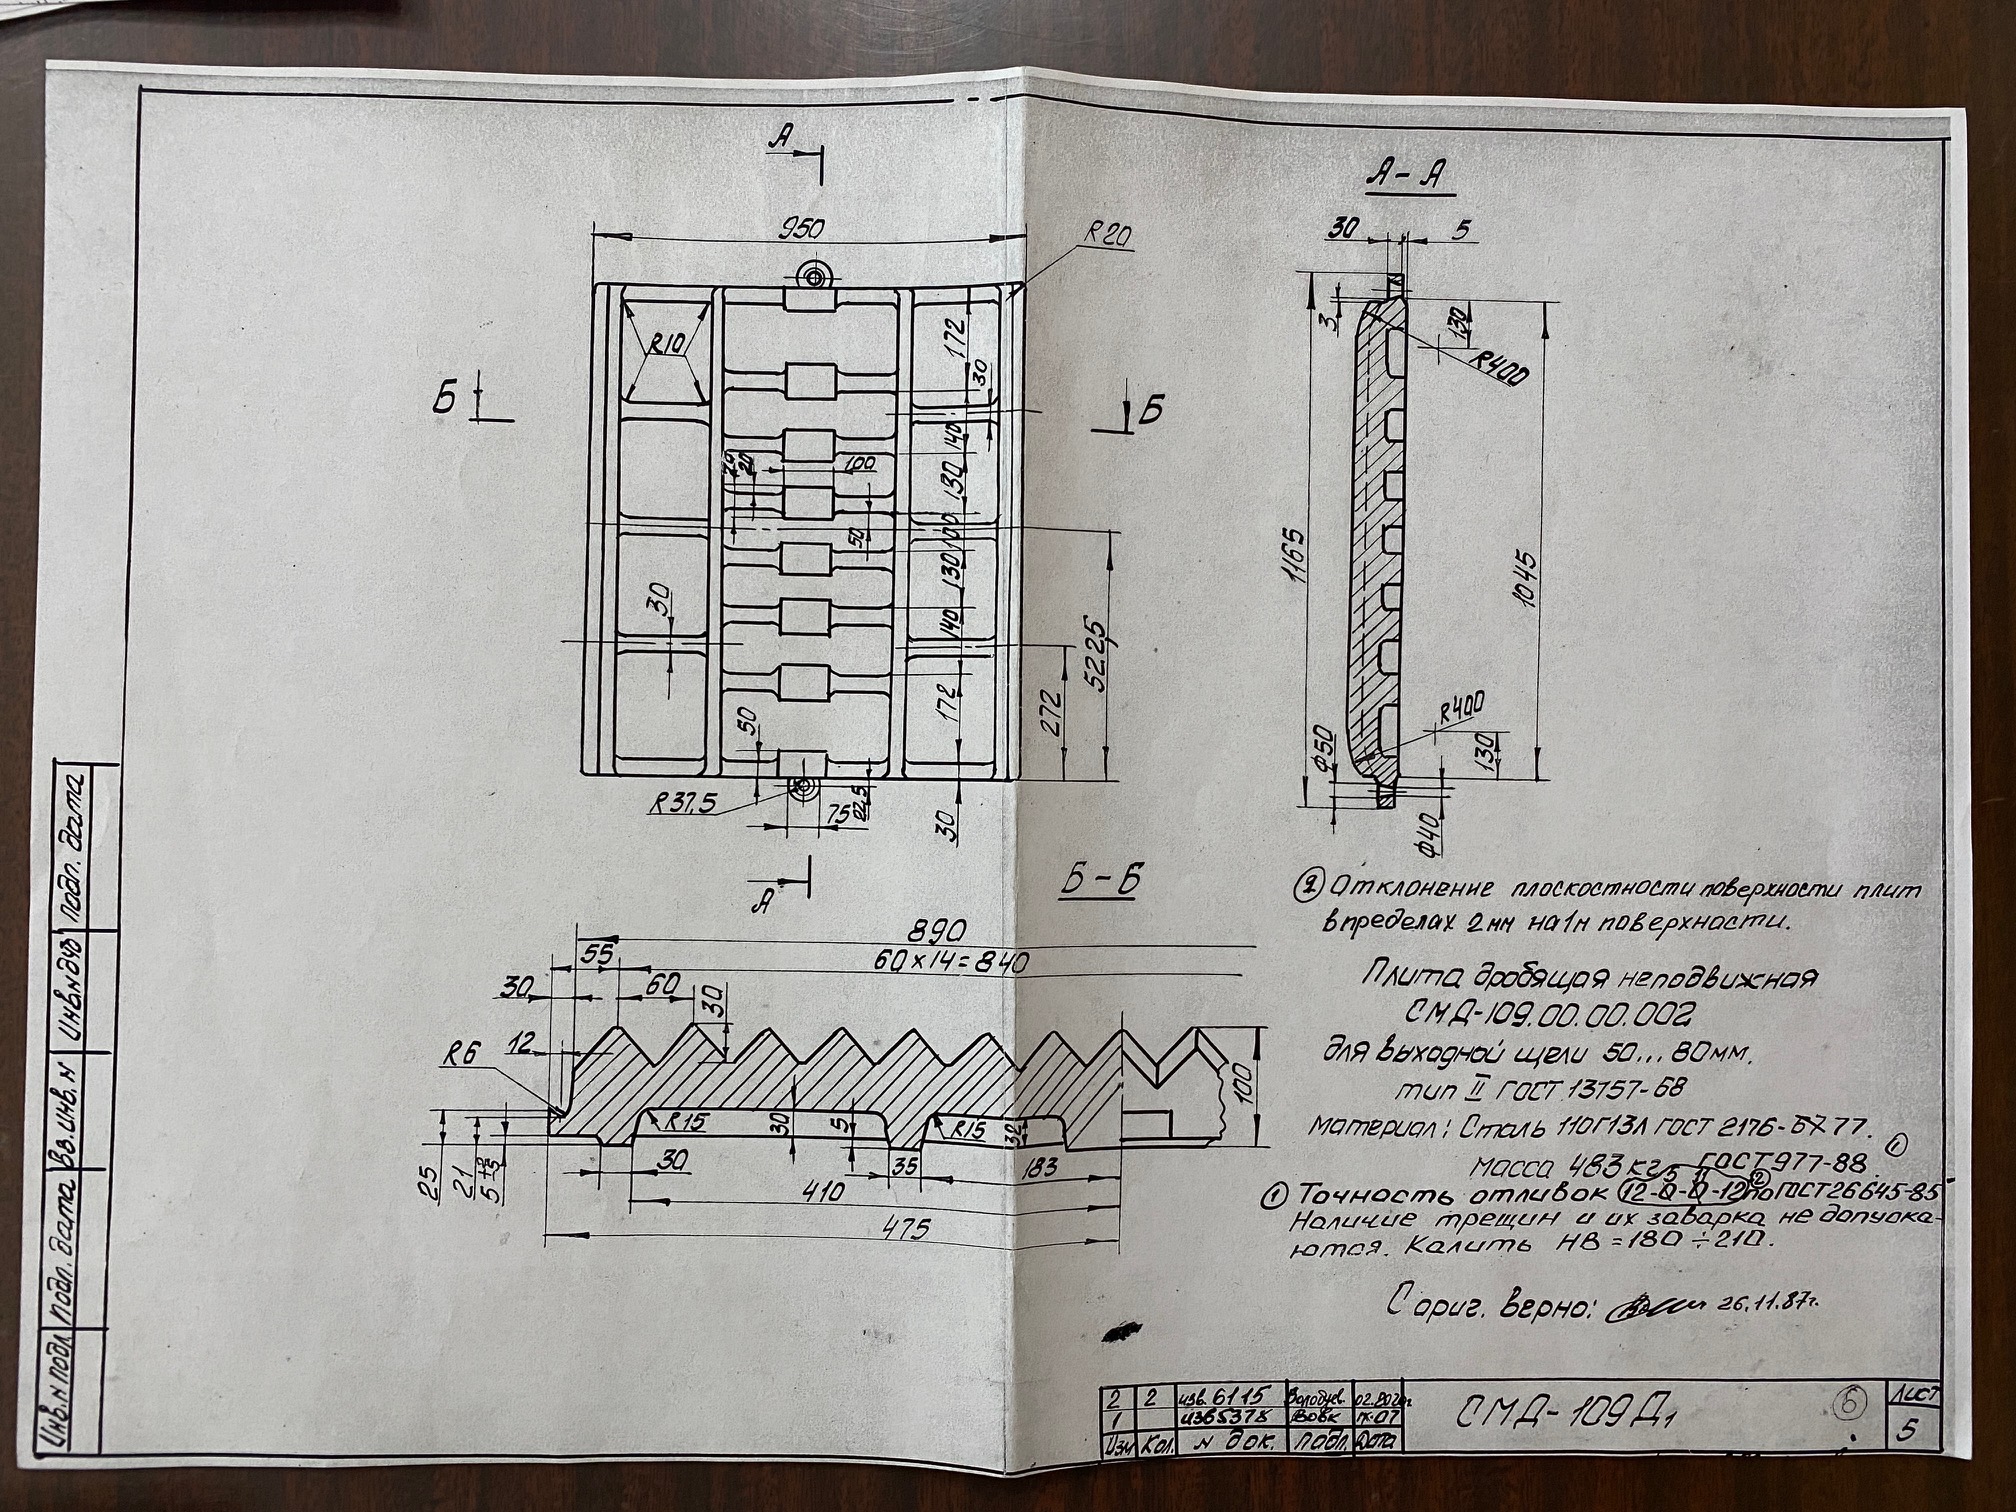 А
950
R20
R10
172
30
Б
Б
140
20
20
100
130
100
50
130
30
140
522,5
272
172
50
R37,5
75
22,5
30
А
А-А
30
5
3
130
R400
1165
1045
R400
ф50
130
ф40
Б-Б
890
60×14=840
55
30
60
30
12
R6
100
R15
30
5
R15
32
25
21
30
35
183
410
475
② Отклонение плоскостности поверхности плит
в пределах 2мм на 1м поверхности.
Плита дробящая неподвижная
СМД-109.00.00.002
для выходной щели 50...80мм.
тип II ГОСТ 13757-68
материал: Сталь 110Г13Л ГОСТ 2176-77.
масса 483кг ГОСТ 977-88 ①
① Точность отливок ② по ГОСТ 26645-85
Наличие трещин и их заварка не допуска-
ются. Калить НВ=180÷210.
С ориг. верно: 26.11.87г.
Инв.N подл
подп. дата
Вз.инв.N
Инв.N дуб
подп. дата
2 2 изв. 6115
1 изв 5378 Вовк
Изм Кол. N док. Подп. Дата
СМД-109Д1
6
Лист
5